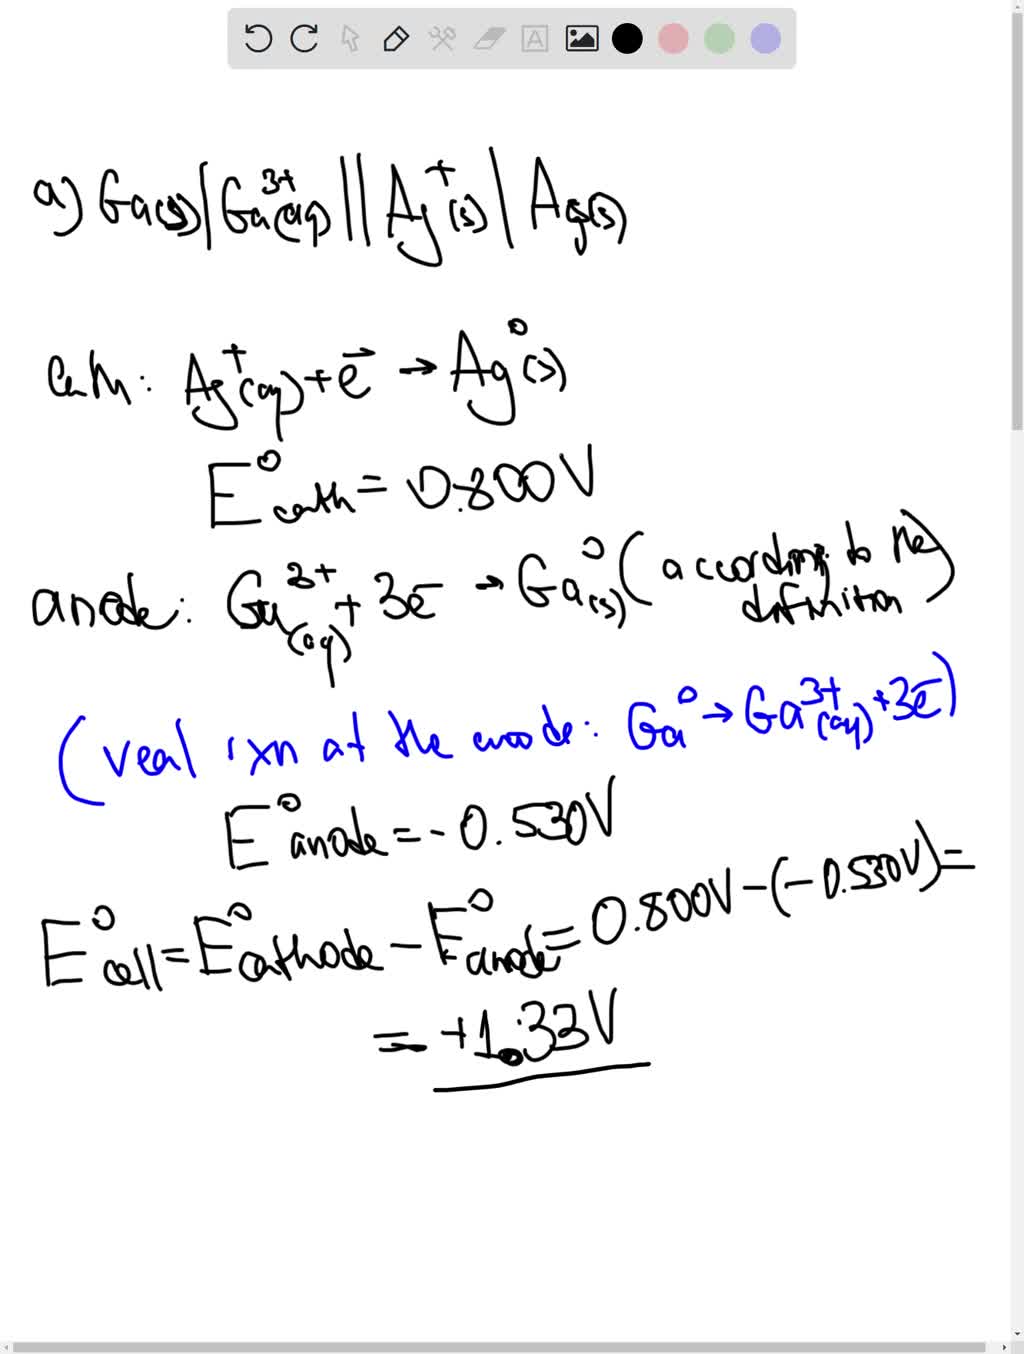 a) Ga(s)|Ga³⁺(aq)||Ag⁺(s)|Ag(s)
Cath: Ag⁺(aq) + e⁻ → Ag⁰(s)
E⁰cath = 0.800V
anode: Ga³⁺(aq) + 3e⁻ → Ga⁰(s) (according to the
definition)
(real rxn at the anode: Ga⁰ → Ga³⁺(aq) + 3e⁻)
E⁰anode = -0.530V
E⁰cell = E⁰cathode - E⁰anode = 0.800V - (-0.530V) =
= +1.33V